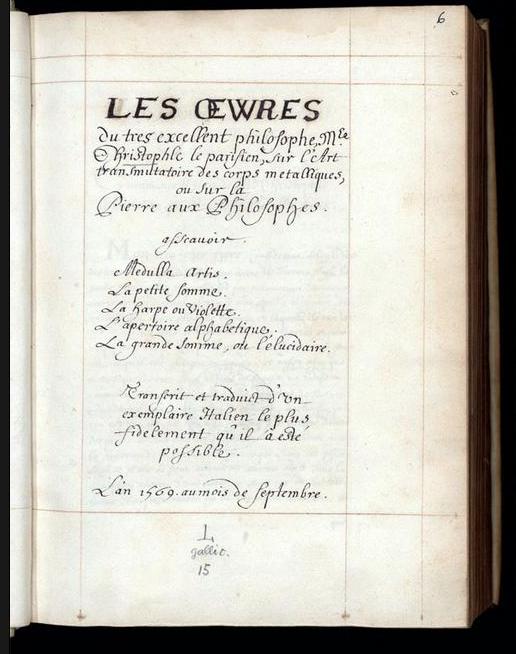 6
LES ŒWRES
du tres excellent philosophe, M.re
Christophle le parisien, sur l'Art
transmutatoire des corps metalliques,
ou sur la
Pierre aux Philosophes.
assçavoir.
Medulla Artis.
La petite somme.
La harpe ou Violette.
L'apertoire alphabetique.
La grande somme, ou l'élucidaire.
Transcrit et traduict d'vn
exemplaire Italien le plus
fidelement qu'il a esté
possible.
L'an 1569. au mois de septembre.
L
gallic.
15